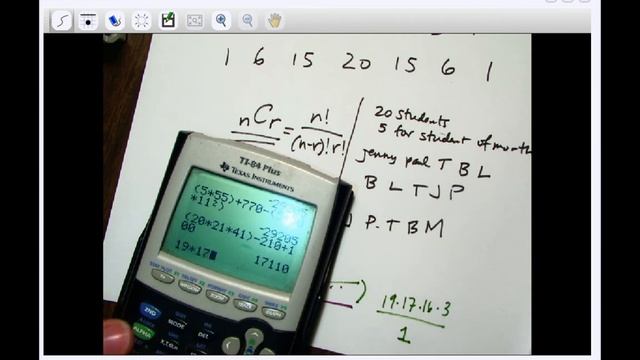 1 6 15 20 15 6 1
nCr = n! / (n-r)! r!
20 students
5 for student of month
jenny paul T B L
B L T J P
P. T B M
TI-84 Plus
TEXAS INSTRUMENTS
(5*55)+770-
*11²)
-29205
(20*21*41)-210+1
00
17110
19*17
2ND
MODE
DEL
ALPHA
X,T,Θ,n
STAT
19·17·16·3
1